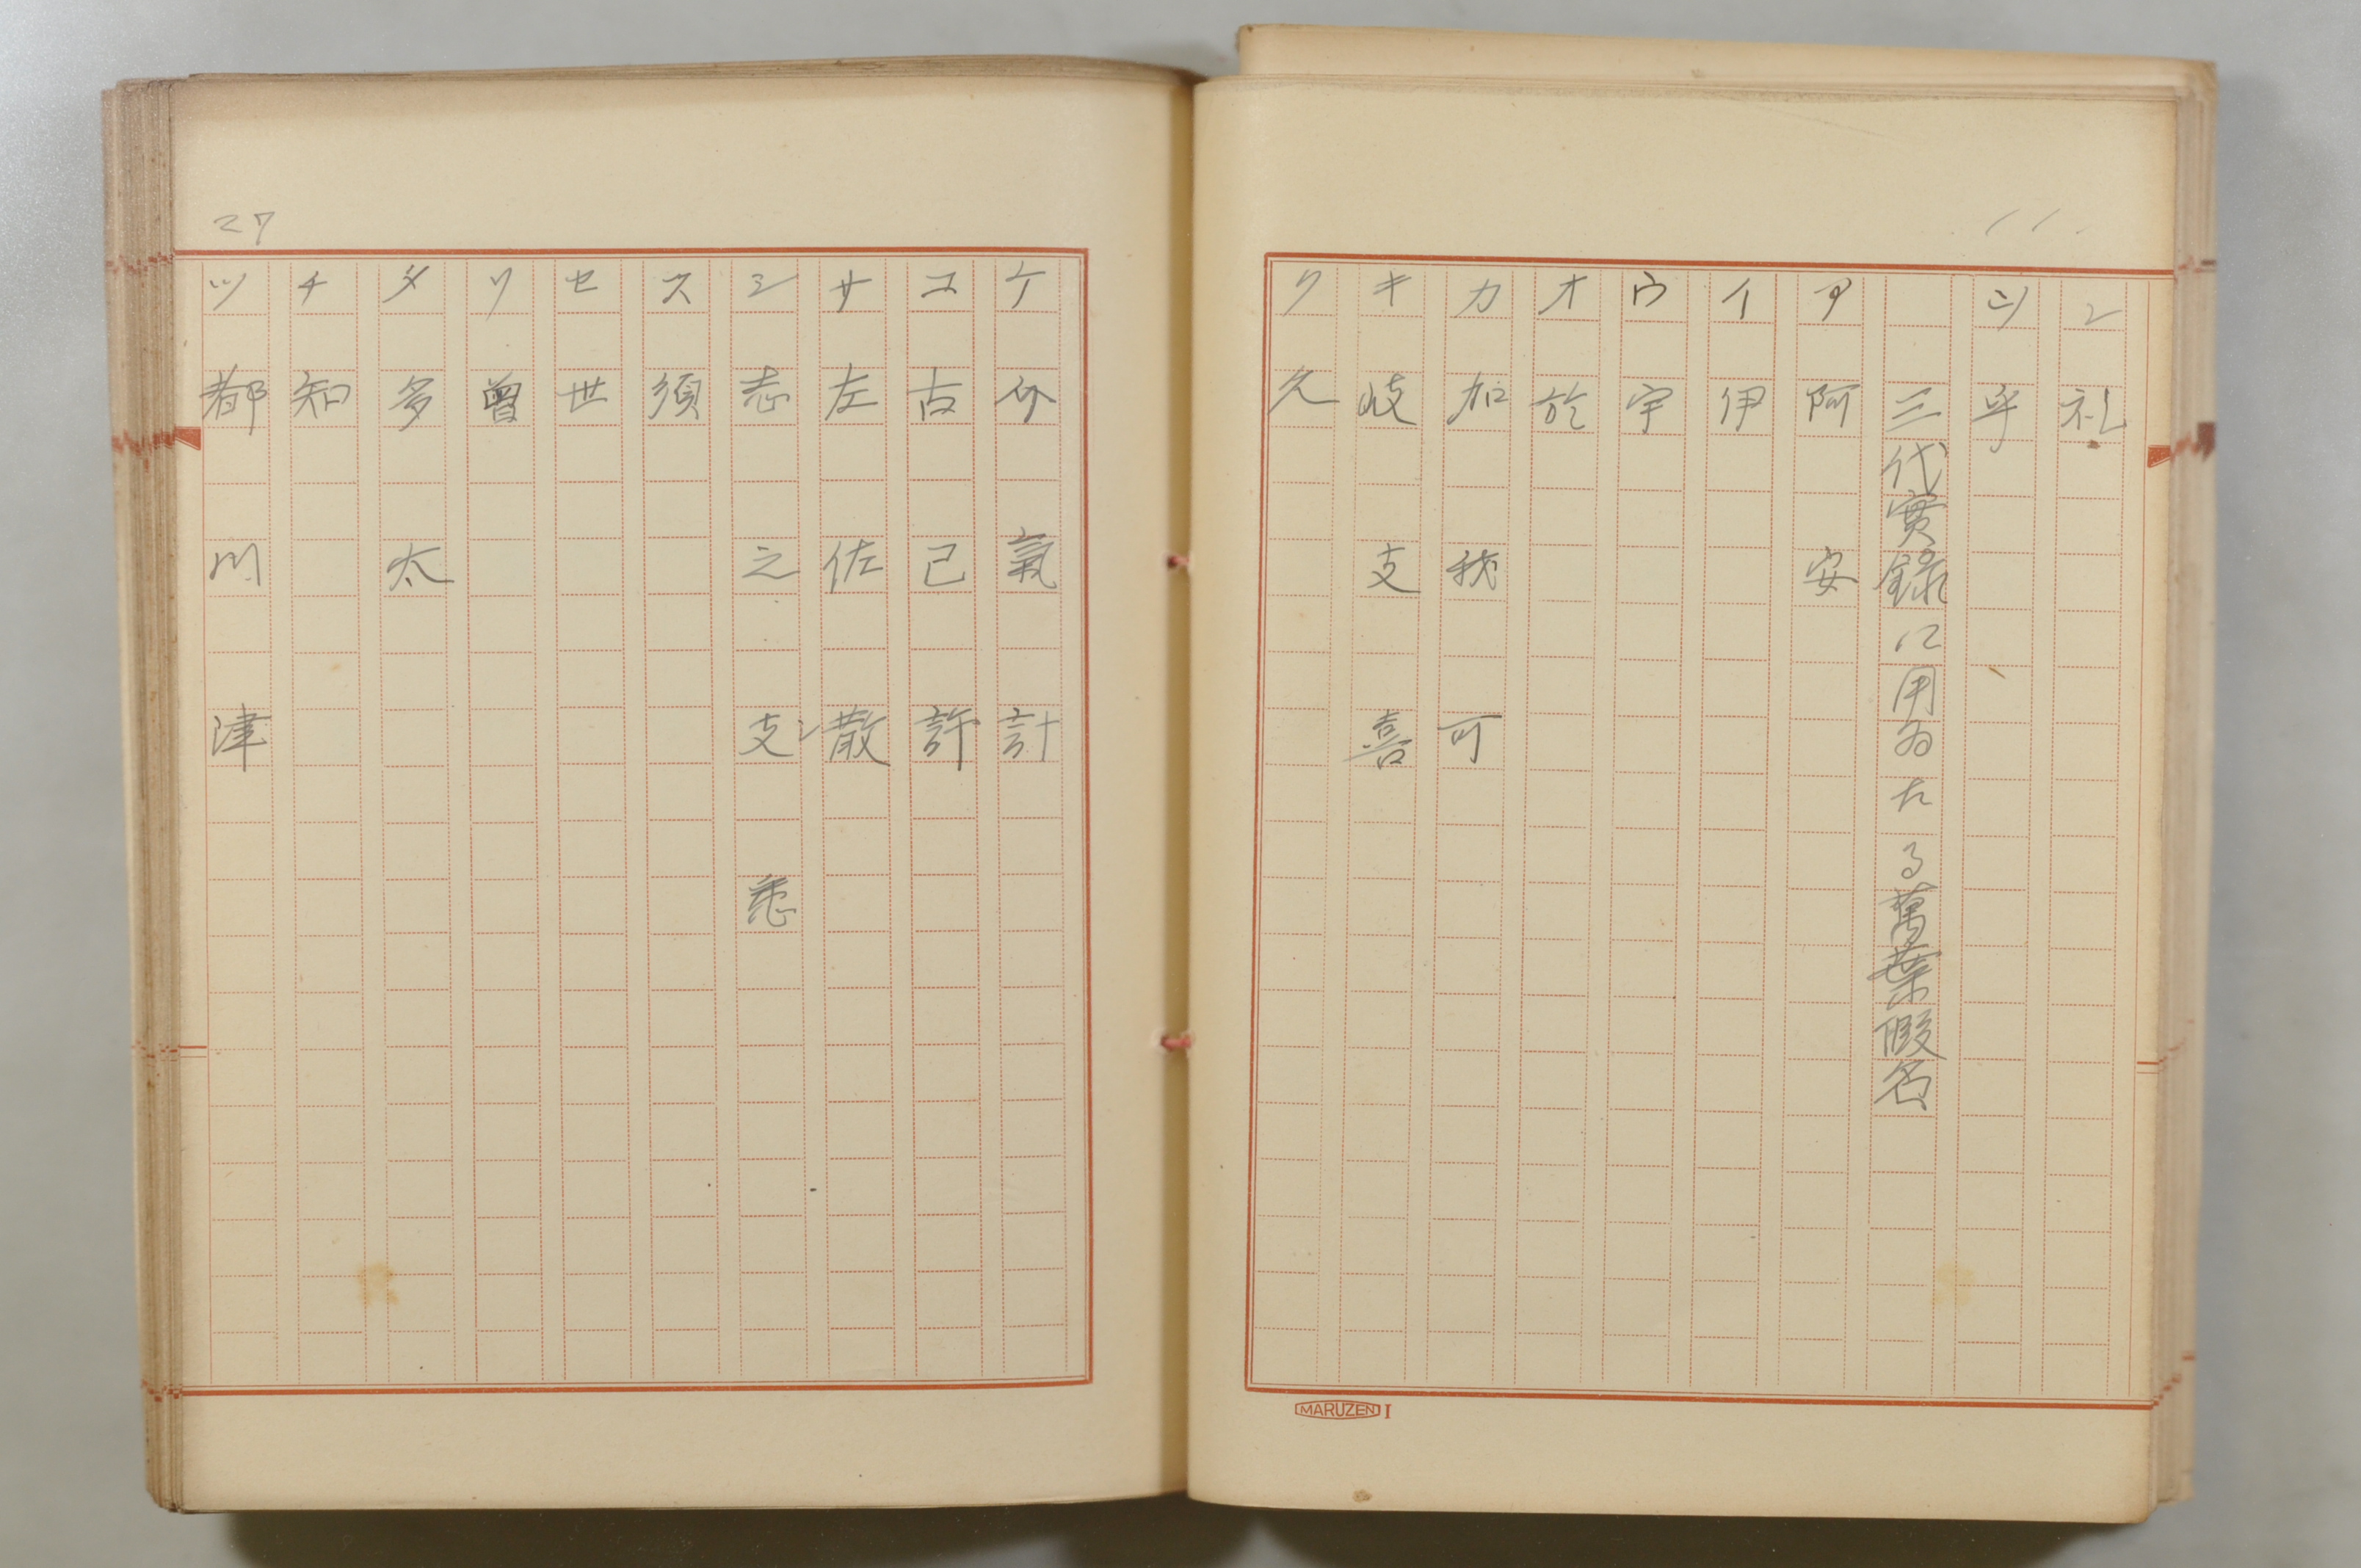 11.
レ 礼
シ 乎
三代實錄に用ゐたる萬葉假名
ア 阿 安
イ 伊
ウ 宇
オ 於
カ 加 我 可
キ 岐 支 喜
ク 久
MARUZEN I
27
ケ 介 氣 計
コ 古 己 許
サ 左 佐 散
シ 志 之 支 悉
ス 須
セ 世
ソ 曾
タ 多 太
チ 知
ツ 都 川 津